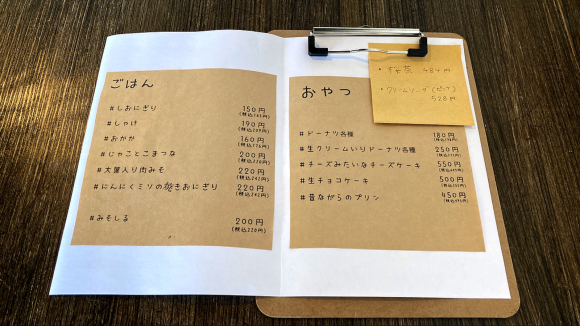 ごはん
#しおにぎり 150円
#しゃけ 190円
(税込209円)
#おかか 160円
(税込176円)
#じゃことこまつな 200円
(税込220円)
#大葉入り肉みそ 220円
(税込242円)
#にんにくミソの焼きおにぎり 220円
(税込242円)
#みそしる 200円
(税込220円)
おやつ
#ドーナツ各種 180円
#生クリームいりドーナツ各種 250円
#チーズみたいなチーズケーキ 550円
#生チョコケーキ 500円
#昔ながらのプリン 450円
484円
・クリームソーダ
528円